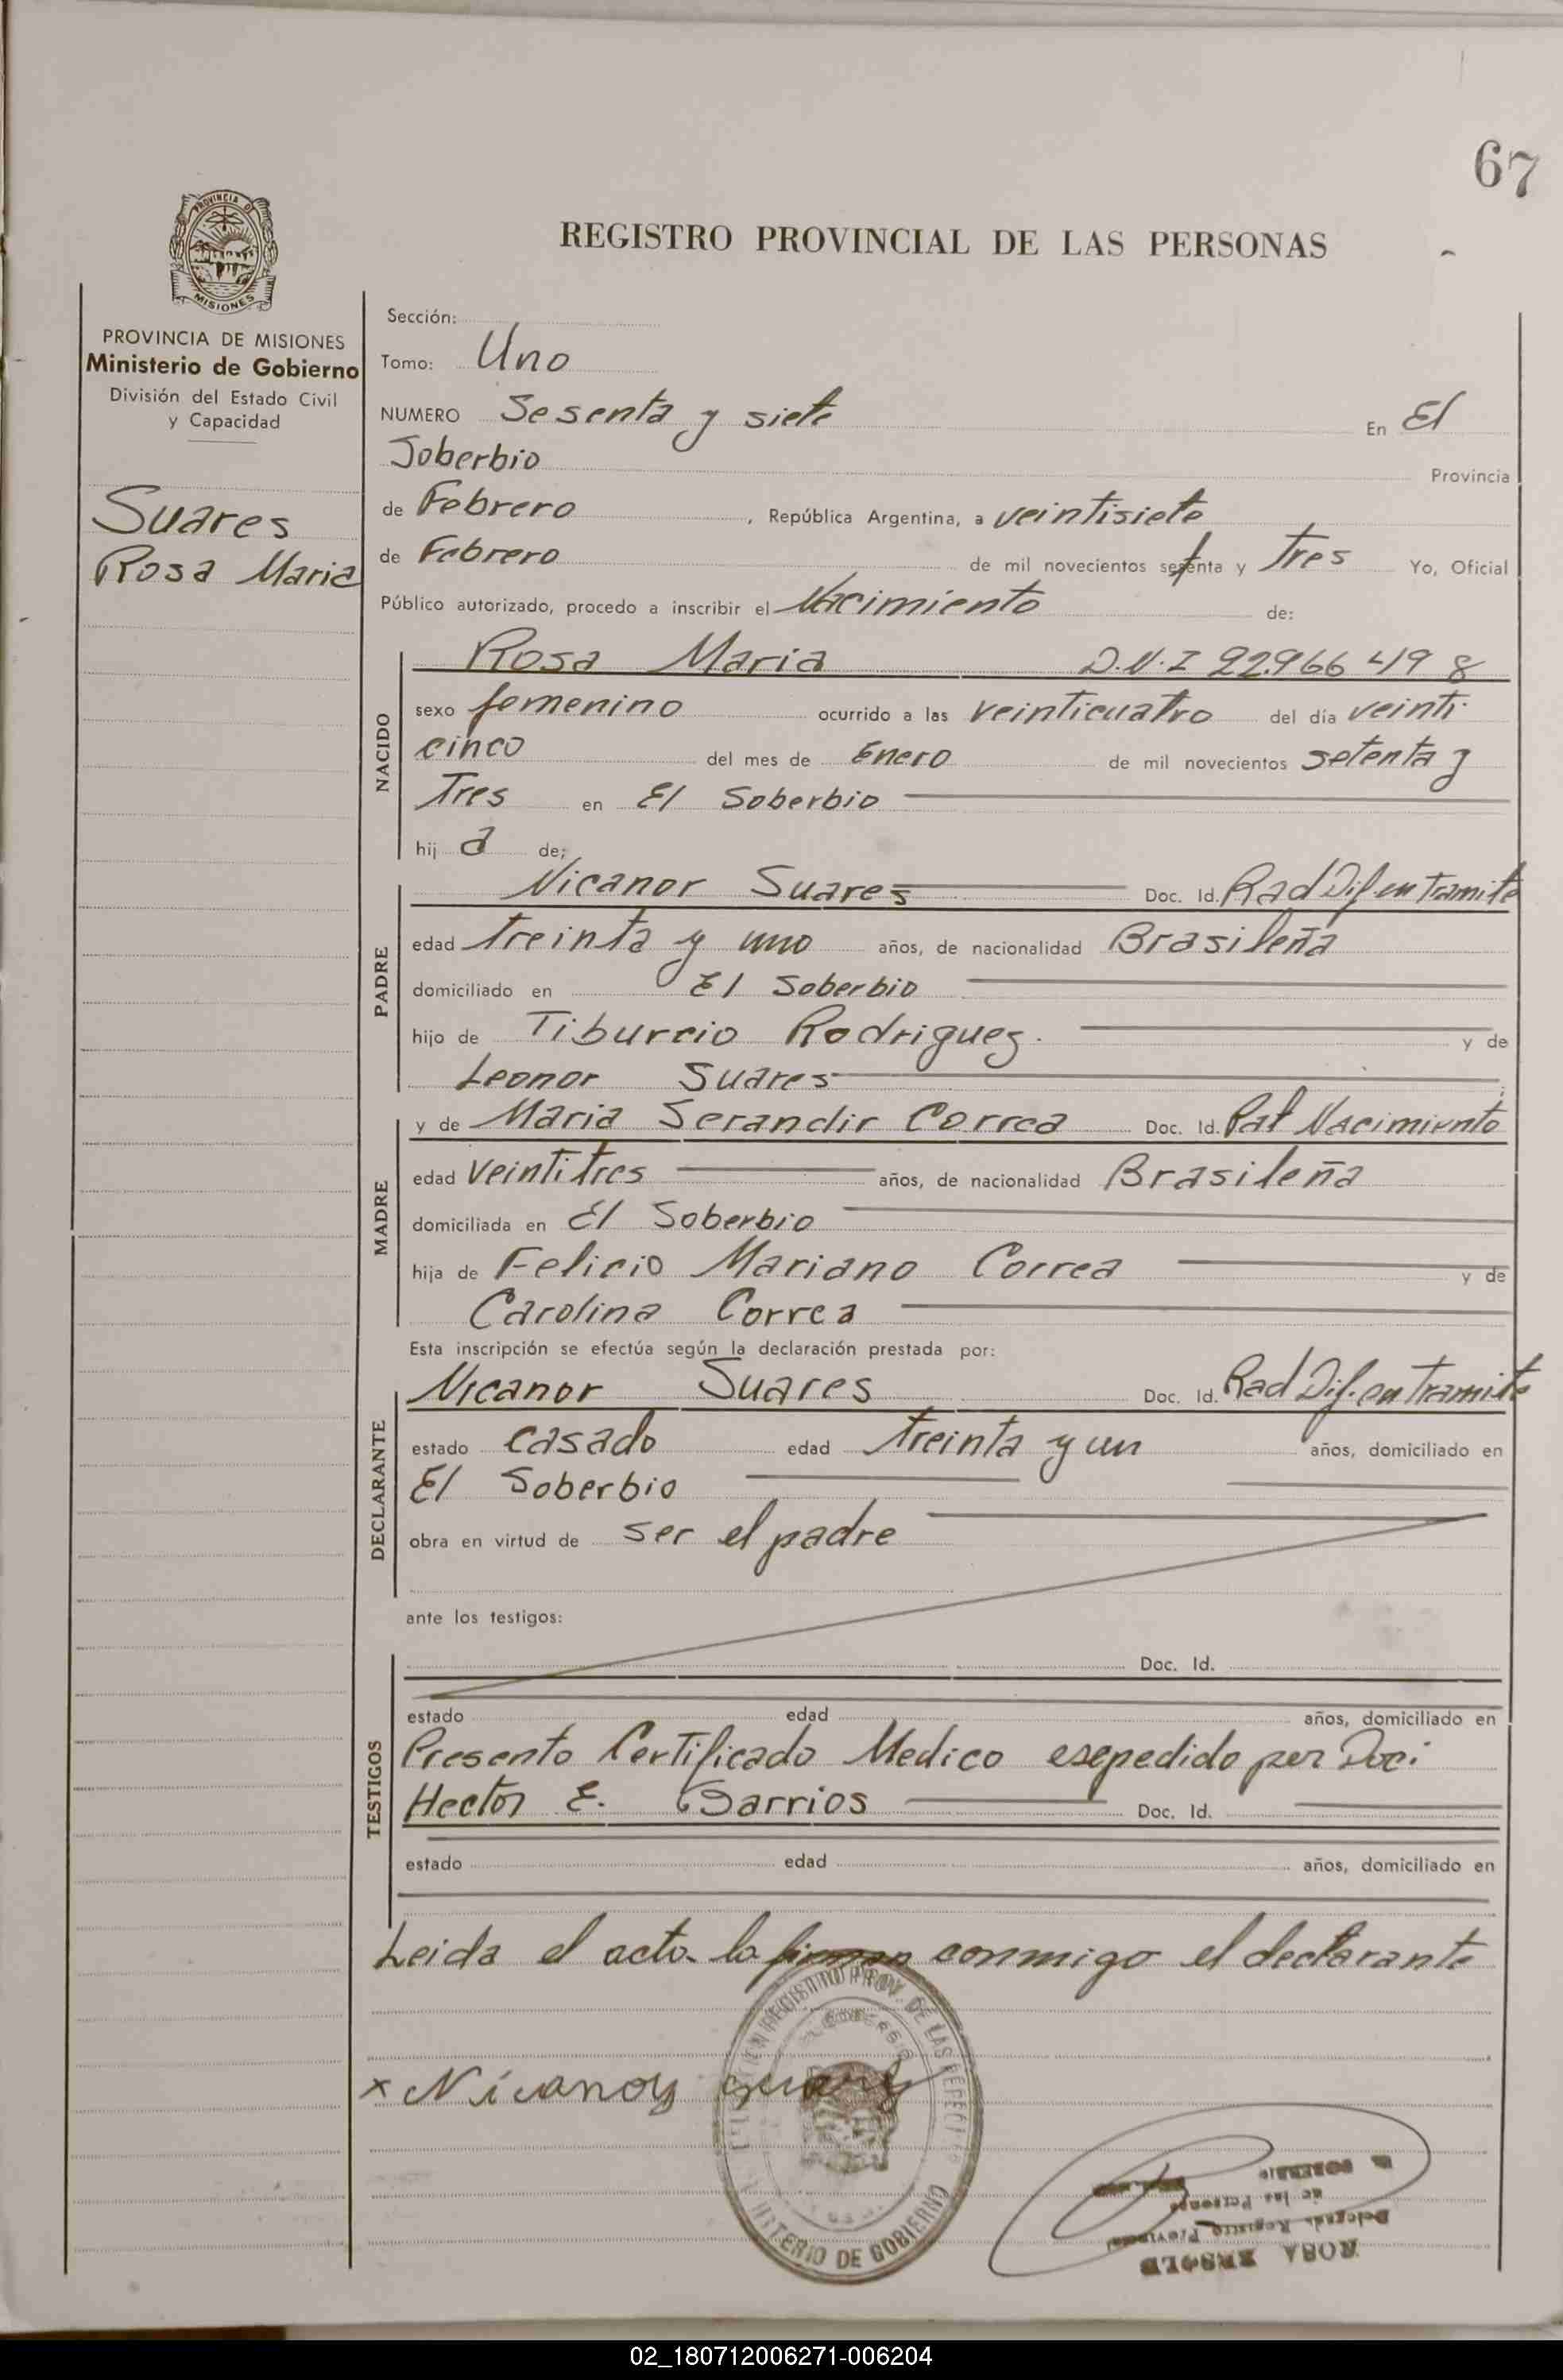 67
REGISTRO PROVINCIAL DE LAS PERSONAS
PROVINCIA DE MISIONES
PROVINCIA DE MISIONES
Ministerio de Gobierno
División del Estado Civil
y Capacidad
Suares
Rosa Maria
Sección:
Tomo: Uno
NUMERO Sesenta y siete En El
Soberbio Provincia
de Febrero, República Argentina, a veintisiete
de Febrero de mil novecientos setenta y Tres Yo, Oficial
Público autorizado, procedo a inscribir el Nacimiento de:
NACIDO
Rosa Maria D.N.I 22.966 498
sexo femenino ocurrido a las veinticuatro del día veinti
cinco del mes de Enero de mil novecientos setenta y
Tres en El Soberbio
hij a de;
PADRE
Nicanor Suares Doc. Id. Rad Dif. en Tramite
edad treinta y uno años, de nacionalidad Brasileña
domiciliado en El Soberbio
hijo de Tiburcio Rodriguez. y de
Leonor Suares
MADRE
y de Maria Serandir Correa Doc. Id. Pat Nacimiento
edad veintitres años, de nacionalidad Brasileña
domiciliada en El Soberbio
hija de Felicio Mariano Correa y de
Carolina Correa
Esta inscripción se efectúa según la declaración prestada por:
DECLARANTE
Nicanor Suares Doc. Id. Rad Dif. en Tramite
estado casado edad treinta y un años, domiciliado en
El Soberbio
obra en virtud de ser el padre
ante los testigos:
TESTIGOS
Doc. Id.
estado edad años, domiciliado en
Presento Certificado Medico esepedido per Doc:
Hector E. Barrios Doc. Id.
estado edad años, domiciliado en
Leida el acta la firman conmigo el declarante
REGISTRO PROV. DE LAS
x Nicanor Suares
DE GOBIERNO
EL SOBERBIO
de las Personas
Delegada Registro Provincial
ROSA
02_180712006271-006204